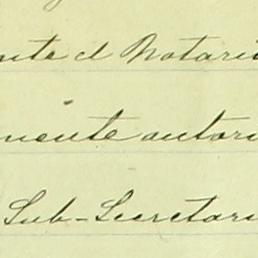 nte el Notari
mente autori
Sub-Secretari